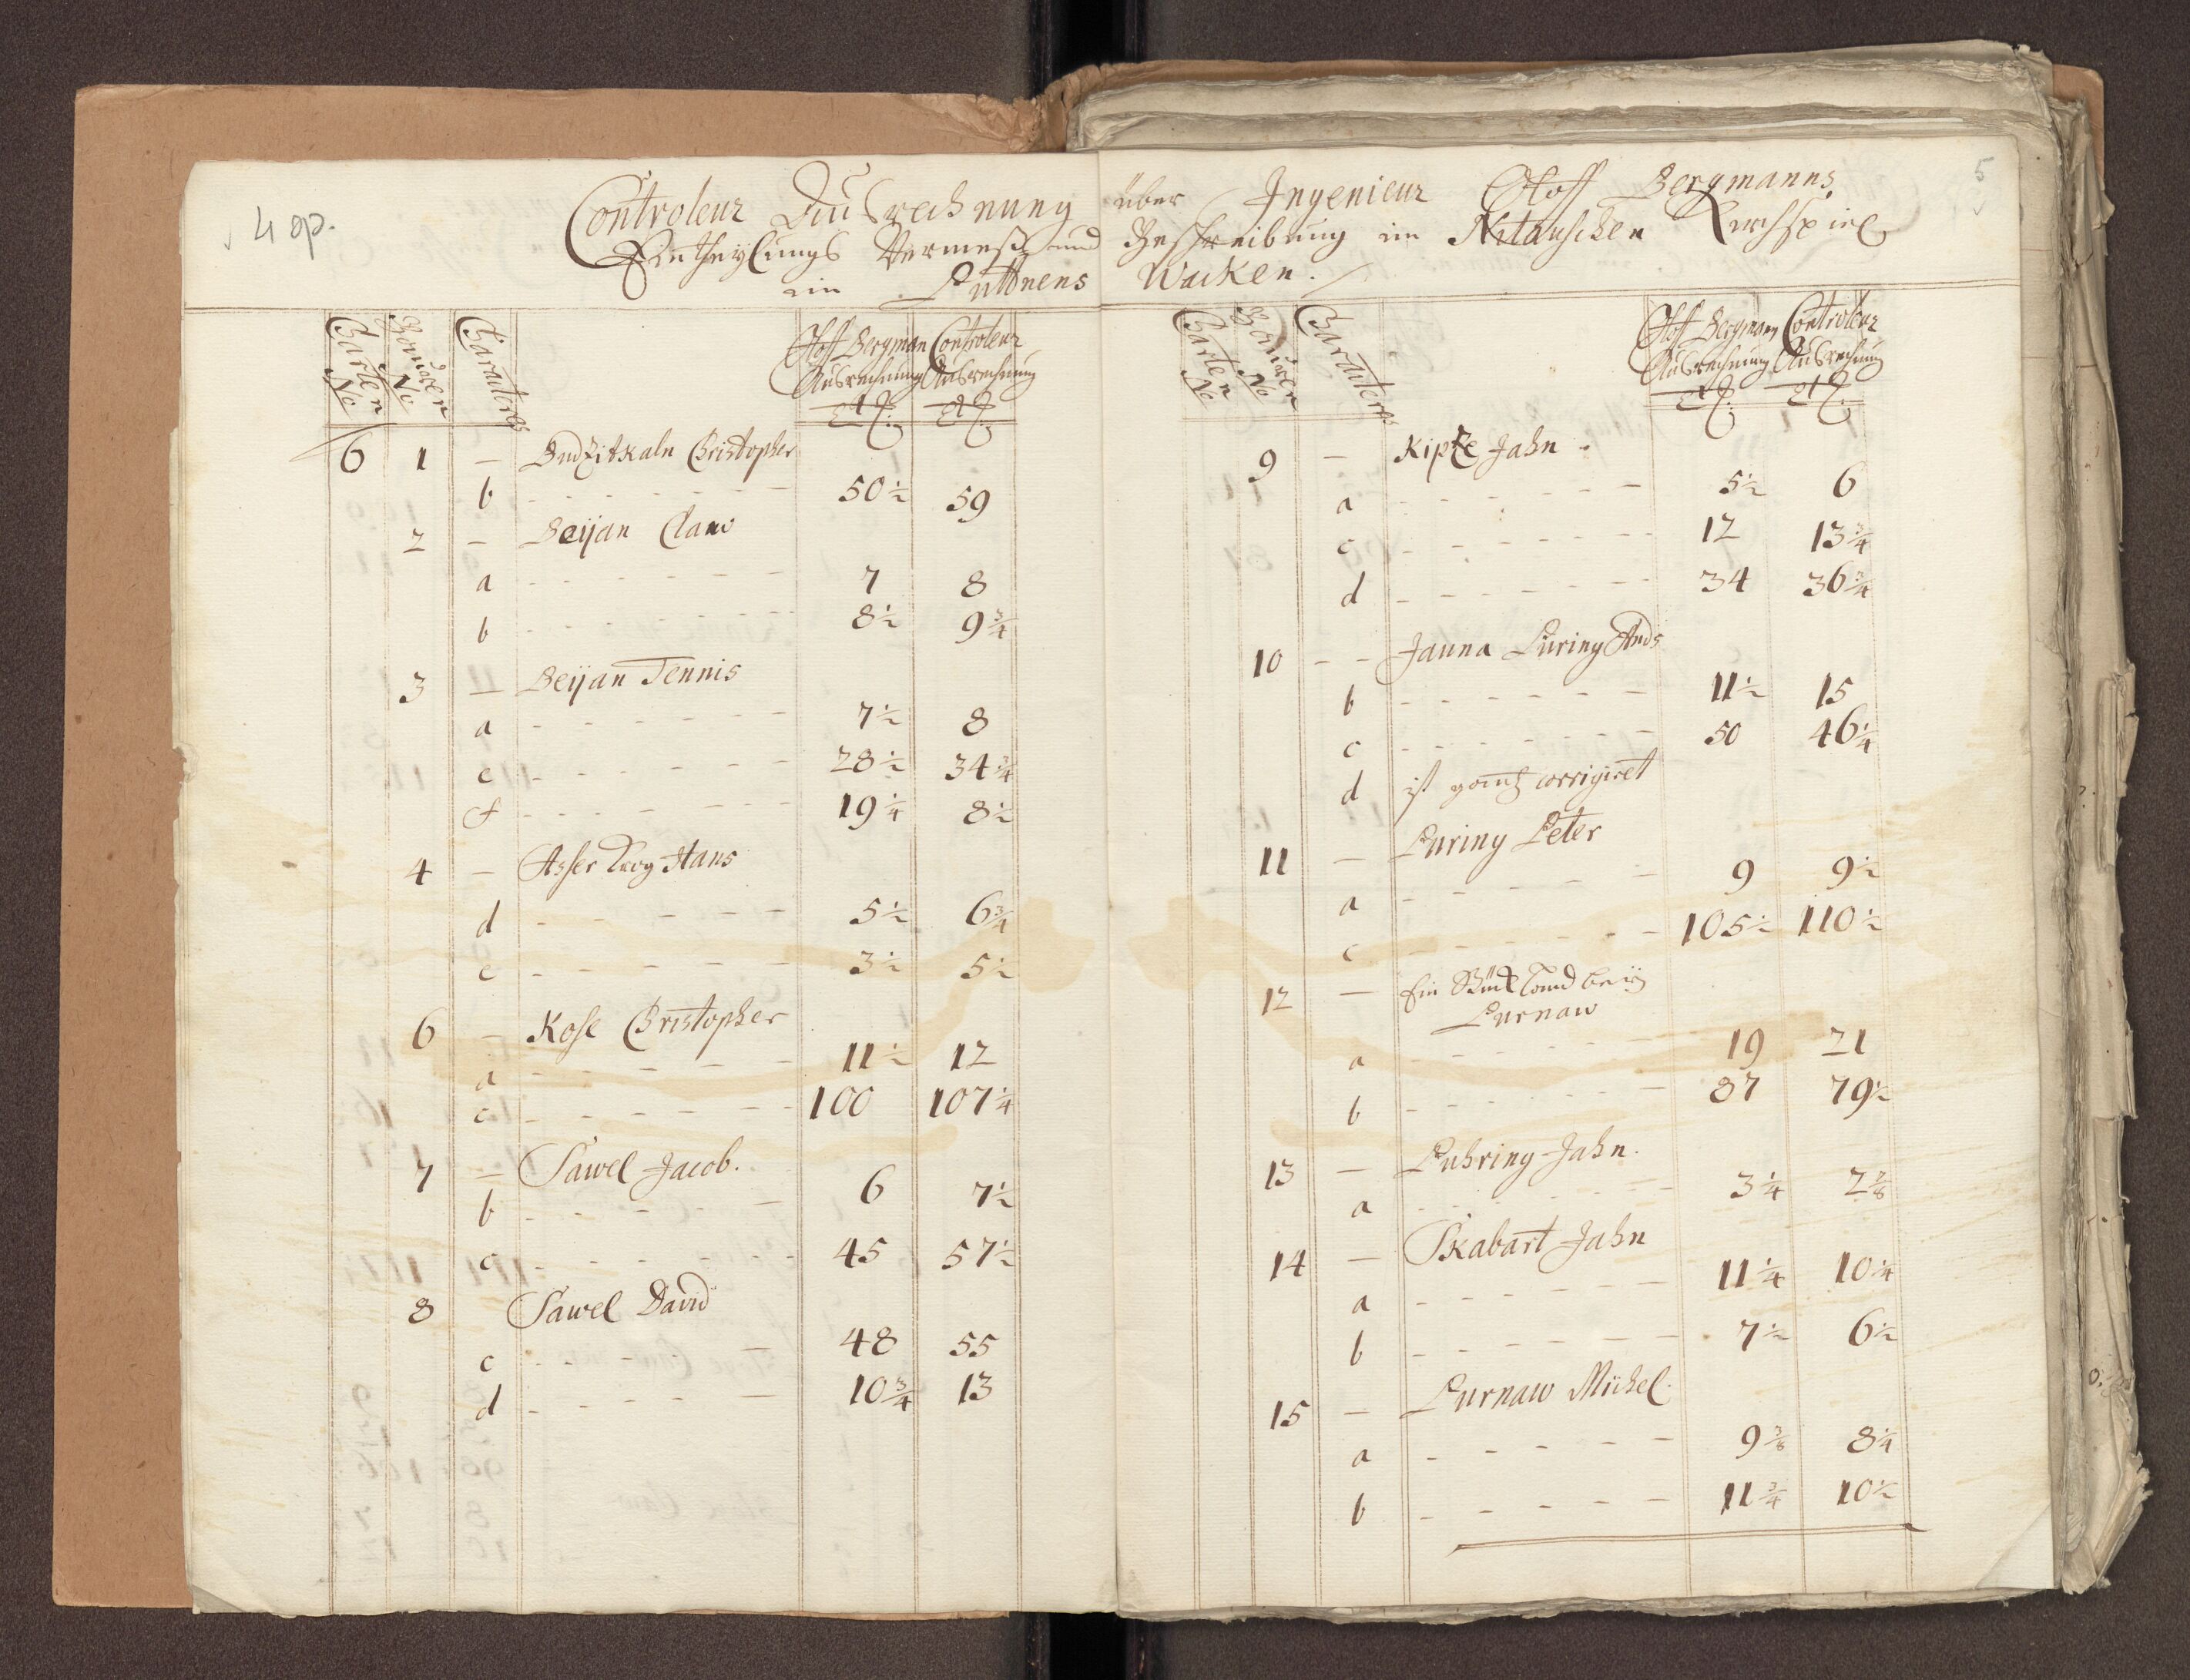 4 op.
5
Controleur Ausrechnung über Ingenieur Oloff Bergmanns
Eintheylungs Vermeß und Beschreibung im Nitauschen Kirchspiel
im Puttnens Wacken.
Charten No
Bauren No
Caracteres
Oloff Bergman Ausrechnung
Controleur Ausrechnung
6 1 – Andzitkaln Christopher
b - - - - - - 50½ 59
2 – Beijan Claus
a - - - - - - 7 8
b - - - - - - 8½ 9¾
3 – Beijan Tennis
a - - - - - - 7½ 8
c - - - - - - 28½ 34¾
f - - - - - - 19¼ 8½
4 – Asser Krog Hans
d - - - - - - 5½ 6¾
e - - - - - - 3½ 5½
6 – Kose Christopher
a - - - - - - 11½ 12
c - - - - - - 100 107¼
7 – Sawel Jacob.
b - - - - - - 6 7½
c - - - - - - 45 57½
8 Sawel David
c - - - - - - 48 55
d - - - - - - 10¾ 13
Charten No
Bauren No
Caracteres
Oloff Bergman Ausrechnung
Controleur Ausrechnung
9 – Kipze Jahn
a - - - - - - 5½ 6
c - - - - - - 12 13¾
d - - - - - - 34 36¾
10 - – Jauna Puring Ands
b - - - - - - 11½ 15
c - - - - - - 50 46¼
d ist gantz corrigiret
11 – Puring Peter
a - - - - - - 9 9½
c - - - - - - 105½ 110½
12 – Ein Stück Land beij
Purnaw
a - - - - - - 19 21
b - - - - - - 87 79½
13 – Puhring Jahn.
a - - - - - - 3¼ 2⅞
14 – Skabart Jahn
a - - - - - - 11¼ 10¼
b - - - - - - 7½ 6½
15 – Purnaw Michel.
a - - - - - 9⅜ 8¼
b - - - - - 11¾ 10½